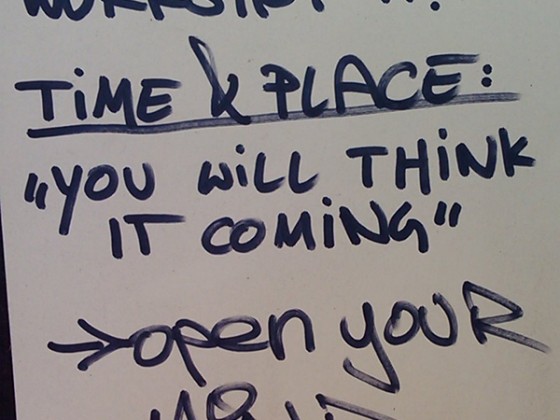 TiME & PLACE:
„YOU WiLL THiNK
IT COMiNG“
→ open youR